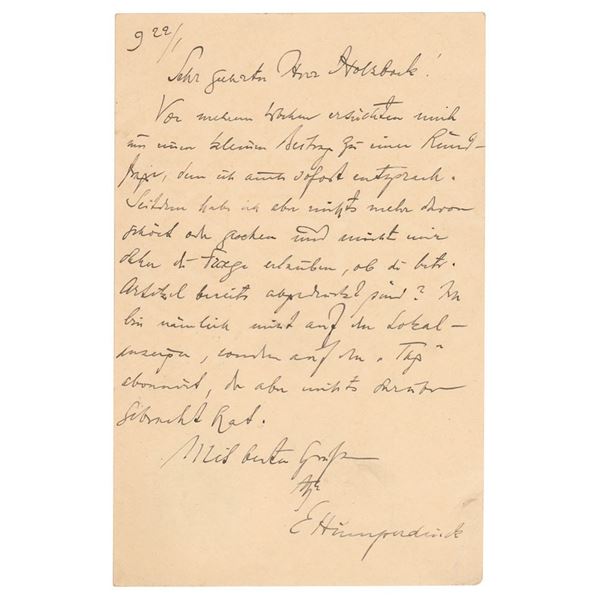 9 22/1
Sehr geehrter Herr Holzbock!
Vor mehreren Wochen ersuchten mich
um einen kleinen Beitrag zu einer Rund-
frage, dem ich auch sofort entsprach.
Seitdem habe ich aber nichts mehr davon
gehört oder gesehen und möchte mir
daher die Frage erlauben, ob die betr.
Artikel bereits abgedruckt sind? Ich
bin nämlich nicht auf den Lokal-
anzeiger, sondern auf den „Tag"
abonniert, der aber nichts darüber
gebracht hat.
Mit besten Grüßen
Ihr
E Humperdinck